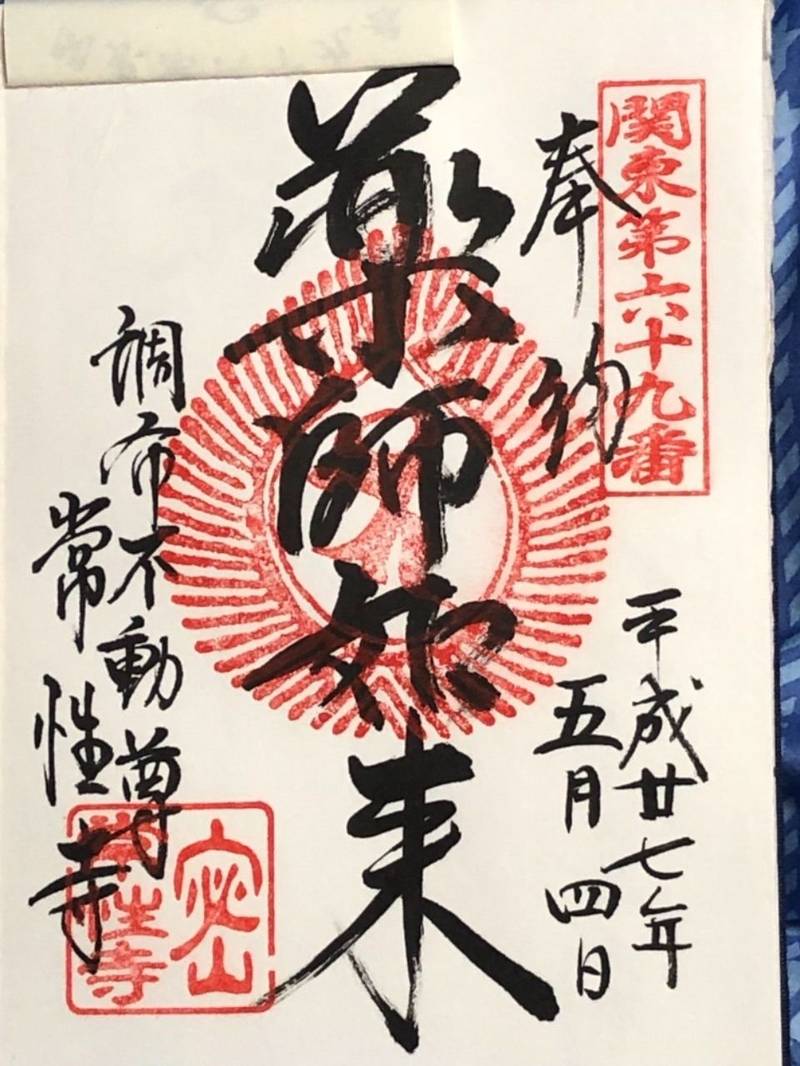 関東第六十九番
奉納
平成廿七年
五月四日
薬師如来
調布不動尊
常性寺
常性寺